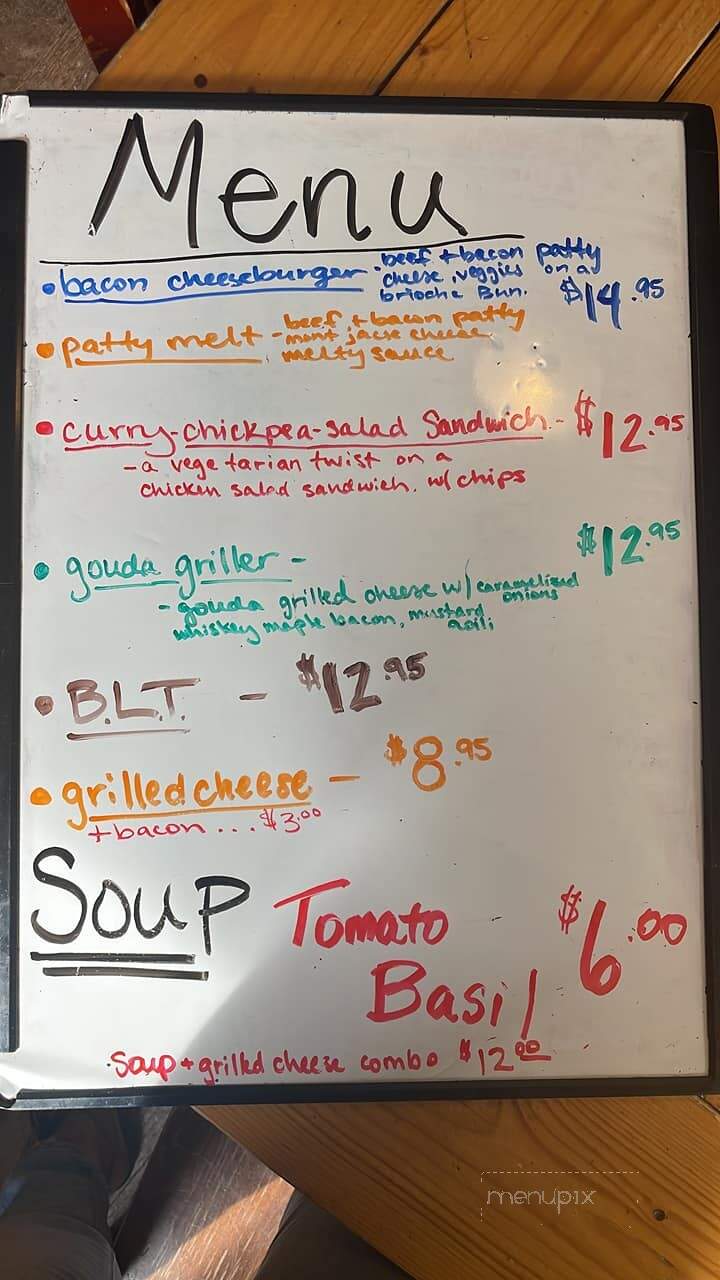 Menu
• bacon cheeseburger - beef + bacon patty
cheese, veggies on a
brioche Bun. $14.95
• patty melt - beef + bacon patty
mont jack cheese
melty sauce
• curry-chickpea-salad Sandwich - $12.95
- a vegetarian twist on a
chicken salad sandwich. w/ chips
• gouda griller - $12.95
- gouda grilled cheese w/ caramelized
onions
whiskey maple bacon, mustard
aoili
• B.L.T. - $12.95
• grilled cheese - $8.95
+ bacon ... $3.00
Soup Tomato $6.00
Basil
• Soup + grilled cheese combo $12.00
menupix